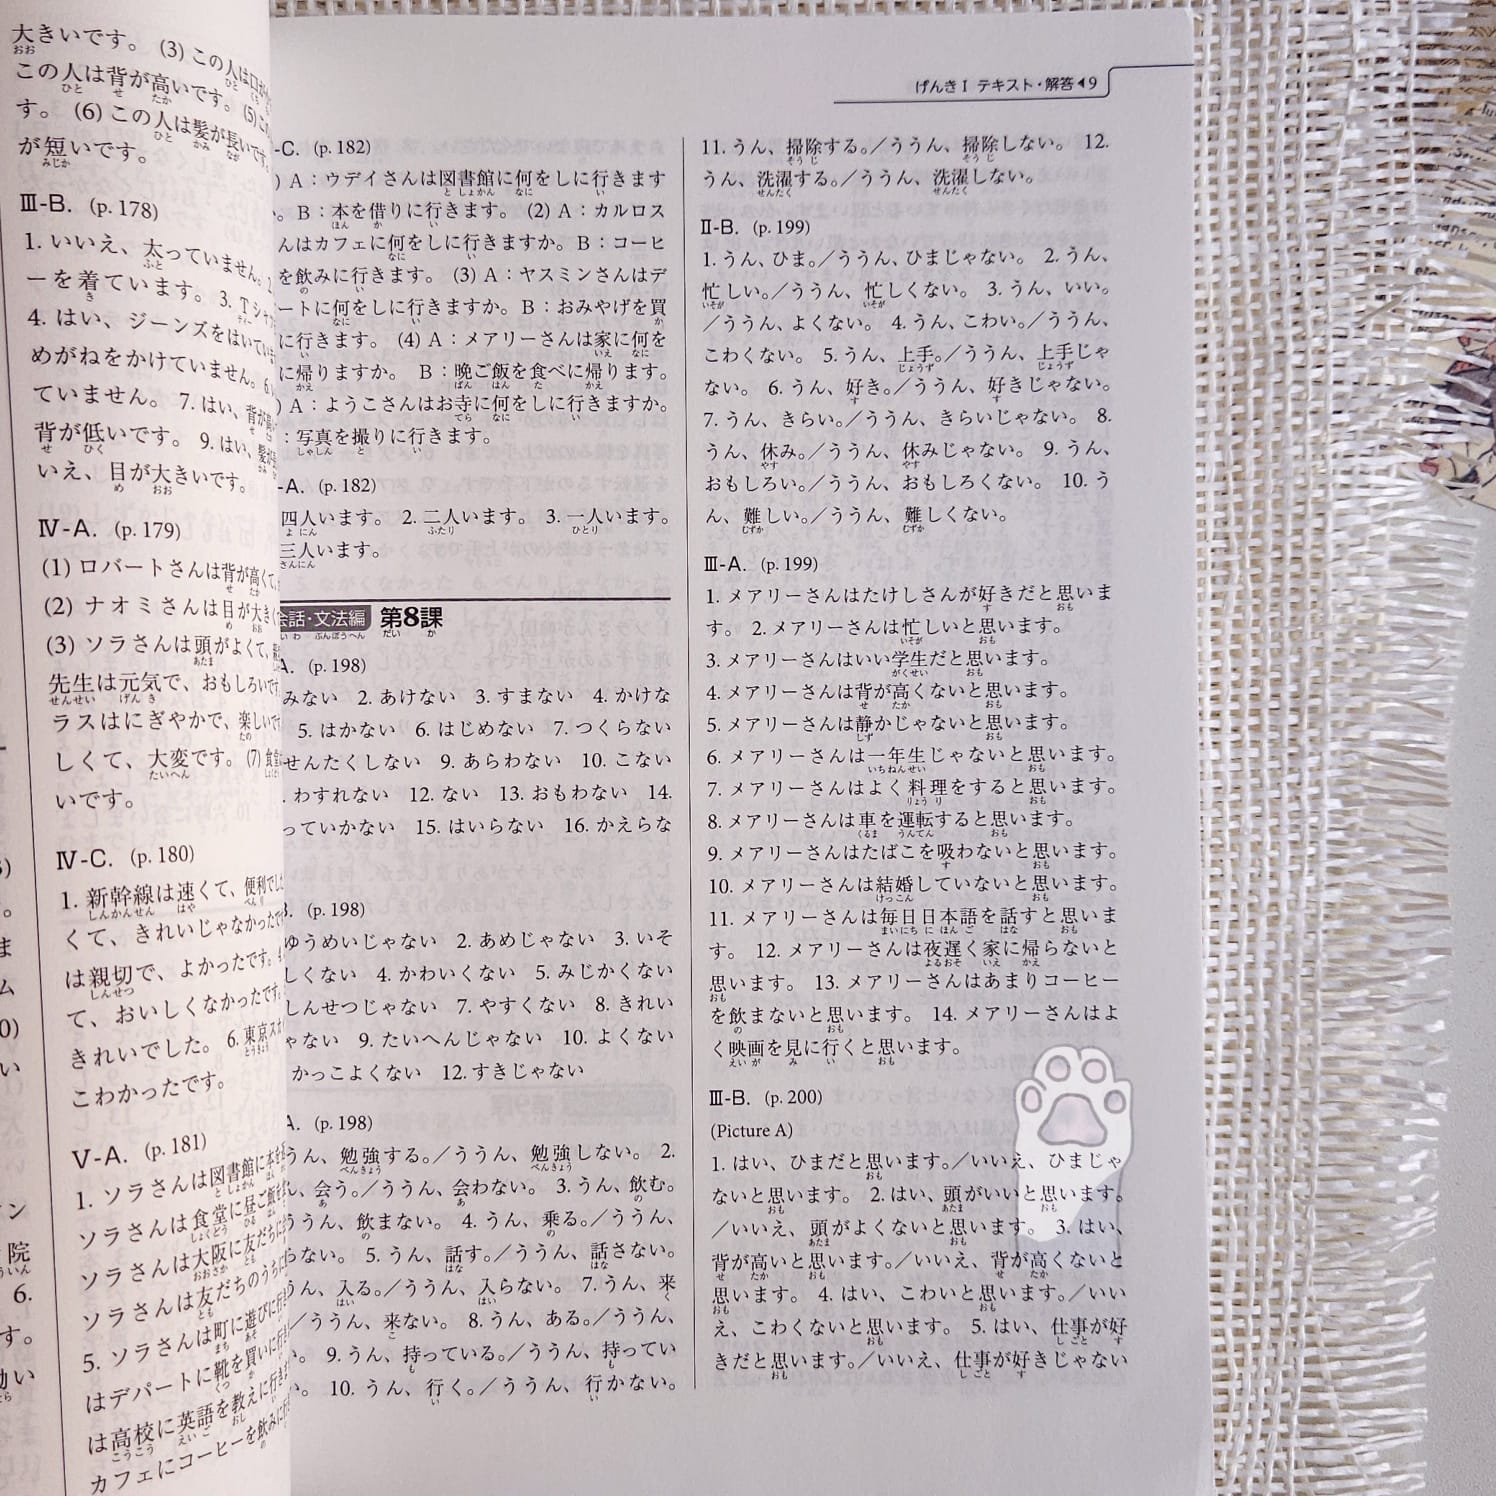 大きいです。 (3) この人は口が
この人は背が高いです。 (5) こ
す。 (6) この人は髪が長いです。
が短いです。
Ⅲ-B. (p. 178)
1. いいえ、太っていません。
ーを着ています。 3. Tシャ
4. はい、ジーンズをはいてい
めがねをかけていません。 6.
ていません。 7. はい、背が
背が低いです。 9. はい、髪が
いえ、目が大きいです。
Ⅳ-A. (p. 179)
(1) ロバートさんは背が高くて、
(2) ナオミさんは目が大きく
(3) ソラさんは頭がよくて、
先生は元気で、おもしろいです
ラスはにぎやかで、楽しいで
しくて、大変です。 (7) 食堂
いです。
Ⅳ-C. (p. 180)
1. 新幹線は速くて、便利でし
くて、きれいじゃなかったで
は親切で、よかったです。
て、おいしくなかったです。
きれいでした。 6. 東京ス
こわかったです。
Ⅴ-A. (p. 181)
1. ソラさんは図書館に本を
ソラさんは食堂に昼ご飯を
ソラさんは大阪に友だちに
ソラさんは友だちのうちに
5. ソラさんは町に遊びに行き
はデパートに靴を買いに行
は高校に英語を教えに行き
カフェにコーヒーを飲みに行
げんきⅠ テキスト・解答◀9
-C. (p. 182)
) A：ウデイさんは図書館に何をしに行きます
。 B：本を借りに行きます。 (2) A：カルロス
んはカフェに何をしに行きますか。B：コーヒ
を飲みに行きます。 (3) A：ヤスミンさんはデ
ートに何をしに行きますか。B：おみやげを買
に行きます。 (4) A：メアリーさんは家に何を
に帰りますか。 B：晩ご飯を食べに帰ります。
) A：ようこさんはお寺に何をしに行きますか。
：写真を撮りに行きます。
-A. (p. 182)
四人います。 2. 二人います。 3. 一人います。
三人います。
会話・文法編 第8課
A. (p. 198)
みない 2. あけない 3. すまない 4. かけな
5. はかない 6. はじめない 7. つくらない
せんたくしない 9. あらわない 10. こない
. わすれない 12. ない 13. おもわない 14.
っていかない 15. はいらない 16. かえらな
B. (p. 198)
ゆうめいじゃない 2. あめじゃない 3. いそ
しくない 4. かわいくない 5. みじかくない
しんせつじゃない 7. やすくない 8. きれい
ゃない 9. たいへんじゃない 10. よくない
かっこよくない 12. すきじゃない
A. (p. 198)
うん、勉強する。／ううん、勉強しない。 2.
ん、会う。／ううん、会わない。 3. うん、飲む。
ううん、飲まない。 4. うん、乗る。／ううん、
らない。 5. うん、話す。／ううん、話さない。
うん、入る。／ううん、入らない。 7. うん、来
／ううん、来ない。 8. うん、ある。／ううん、
。 9. うん、持っている。／ううん、持ってい
。 10. うん、行く。／ううん、行かない。
11. うん、掃除する。／ううん、掃除しない。 12.
うん、洗濯する。／ううん、洗濯しない。
Ⅱ-B. (p. 199)
1. うん、ひま。／ううん、ひまじゃない。 2. うん、
忙しい。／ううん、忙しくない。 3. うん、いい。
／ううん、よくない。 4. うん、こわい。／ううん、
こわくない。 5. うん、上手。／ううん、上手じゃ
ない。 6. うん、好き。／ううん、好きじゃない。
7. うん、きらい。／ううん、きらいじゃない。 8.
うん、休み。／ううん、休みじゃない。 9. うん、
おもしろい。／ううん、おもしろくない。 10. う
ん、難しい。／ううん、難しくない。
Ⅲ-A. (p. 199)
1. メアリーさんはたけしさんが好きだと思いま
す。 2. メアリーさんは忙しいと思います。
3. メアリーさんはいい学生だと思います。
4. メアリーさんは背が高くないと思います。
5. メアリーさんは静かじゃないと思います。
6. メアリーさんは一年生じゃないと思います。
7. メアリーさんはよく料理をすると思います。
8. メアリーさんは車を運転すると思います。
9. メアリーさんはたばこを吸わないと思います。
10. メアリーさんは結婚していないと思います。
11. メアリーさんは毎日日本語を話すと思いま
す。 12. メアリーさんは夜遅く家に帰らないと
思います。 13. メアリーさんはあまりコーヒー
を飲まないと思います。 14. メアリーさんはよ
く映画を見に行くと思います。
Ⅲ-B. (p. 200)
(Picture A)
1. はい、ひまだと思います。／いいえ、ひまじゃ
ないと思います。 2. はい、頭がいいと思います。
／いいえ、頭がよくないと思います。 3. はい、
背が高いと思います。／いいえ、背が高くないと
思います。 4. はい、こわいと思います。／いい
え、こわくないと思います。 5. はい、仕事が好
きだと思います。／いいえ、仕事が好きじゃない